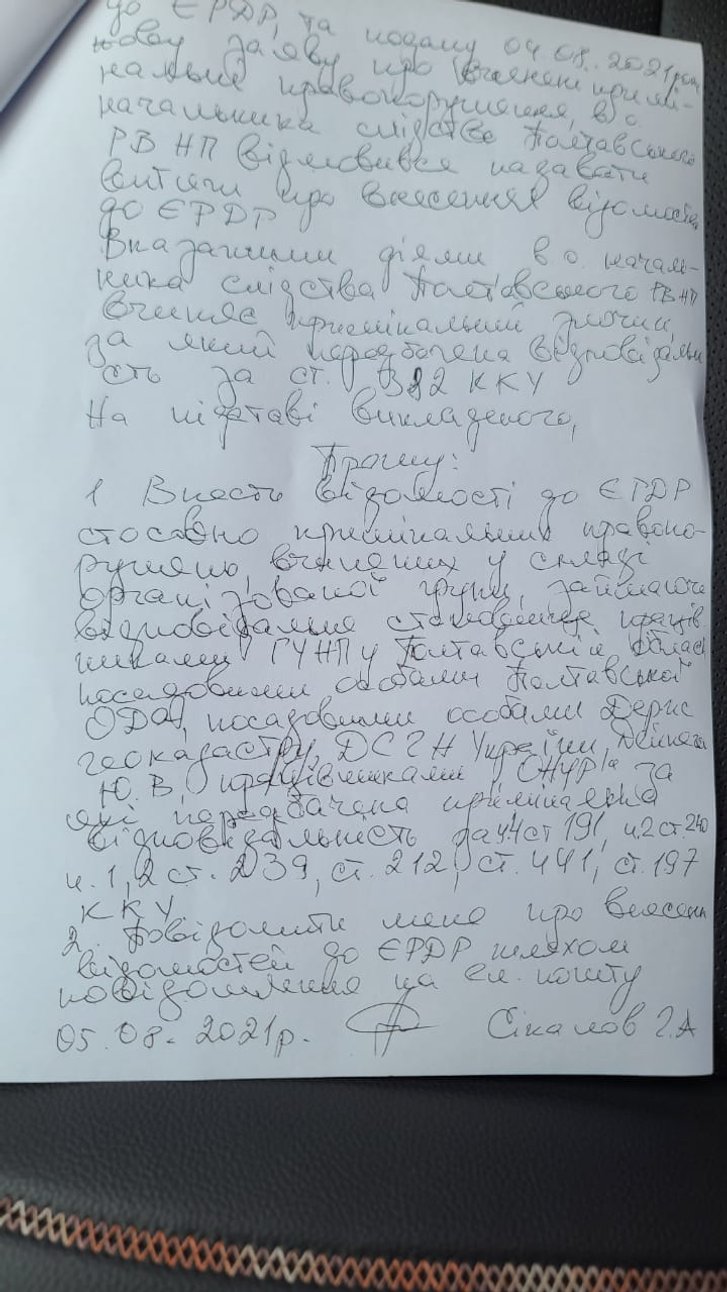 до ЄРДР, та подану 04.08.2021 року
нову заяву про вчинені кримі-
нальні правопорушення, в.о
начальника слідства Полтавського
РВ НП відмовився надавати
витяги про внесення відомостей
до ЄРДР
Вказаними діями в.о. началь-
ника слідства Полтавського РВ НП
вчиняє кримінальний злочин,
за який передбачена відповідальні
сть за ст. 382 ККУ
На підставі викладеного,
Прошу:
1 Внести відомості до ЄРДР
стосовно кримінальних правопо-
рушень, вчинених у складі
організованої групи, займаючи
відповідальне становище праців
никами ГУНП у Полтавській област
посадовими особами Полтавської
ОДА, посадовими особами Держ
геокадастру, ДСГН України,
Ю.В, працівниками за
які передбачена кримінальна
відповідальність за ч4 ст 191, ч.2 ст. 240
ч.1, 2 ст. 239, ст. 212, ст. 441, ст. 197
ККУ
2. Повідомити мене про внесення
відомостей до ЄРДР шляхом
повідомлення на ел. пошту
05.08.2021р. Сікалов Г.А